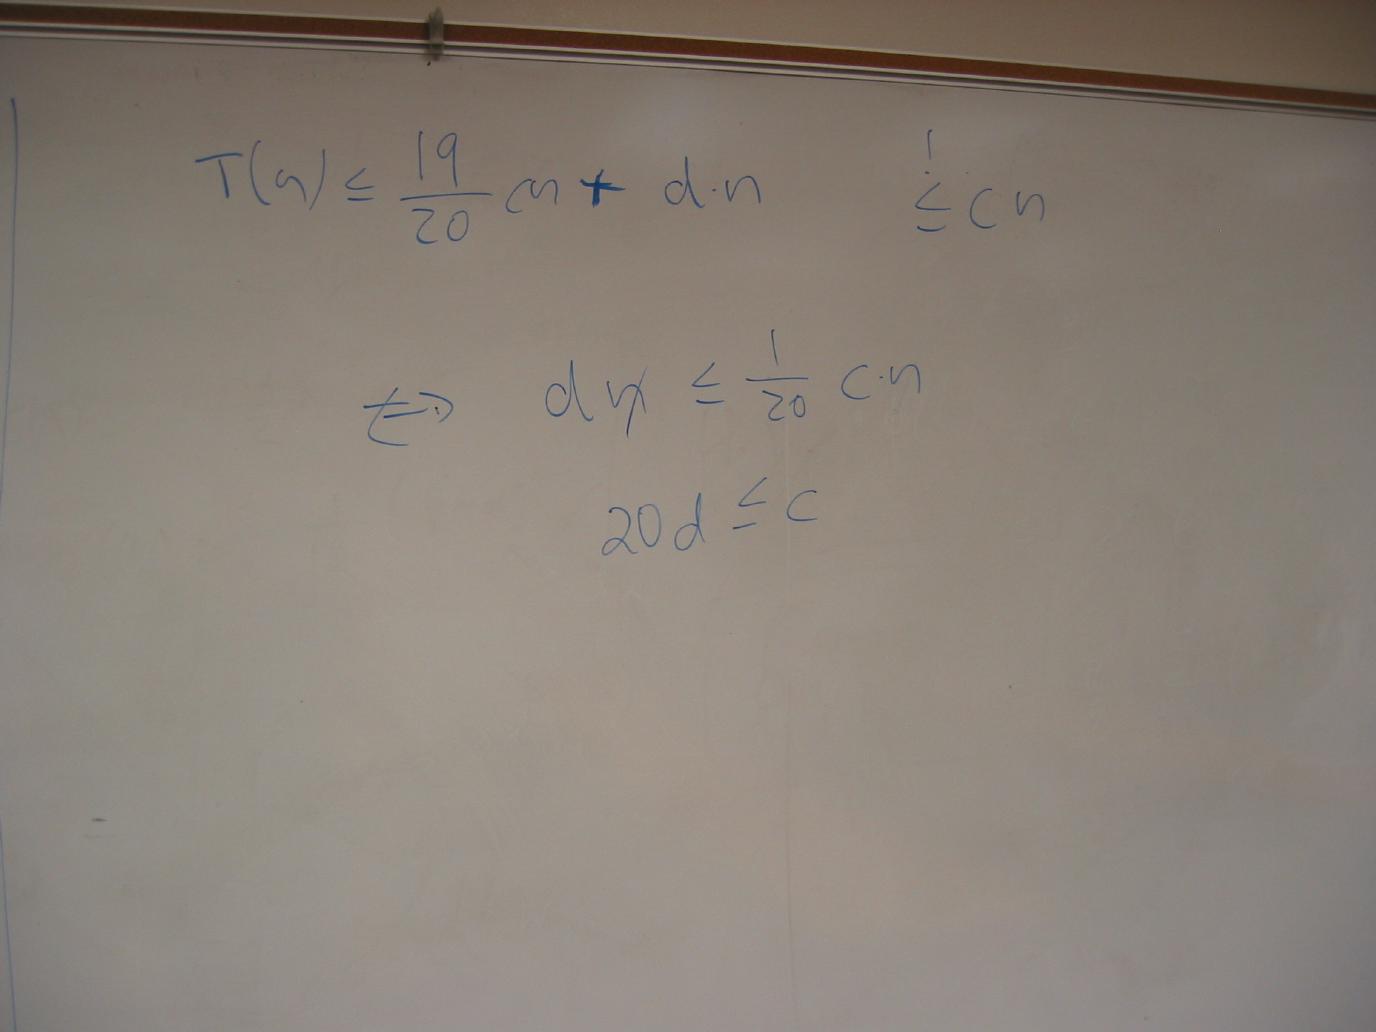 T(n) ≤ 19/20 cn + d·n !≤ cn
⇔ dn ≤ 1/20 c·n
20d ≤ c